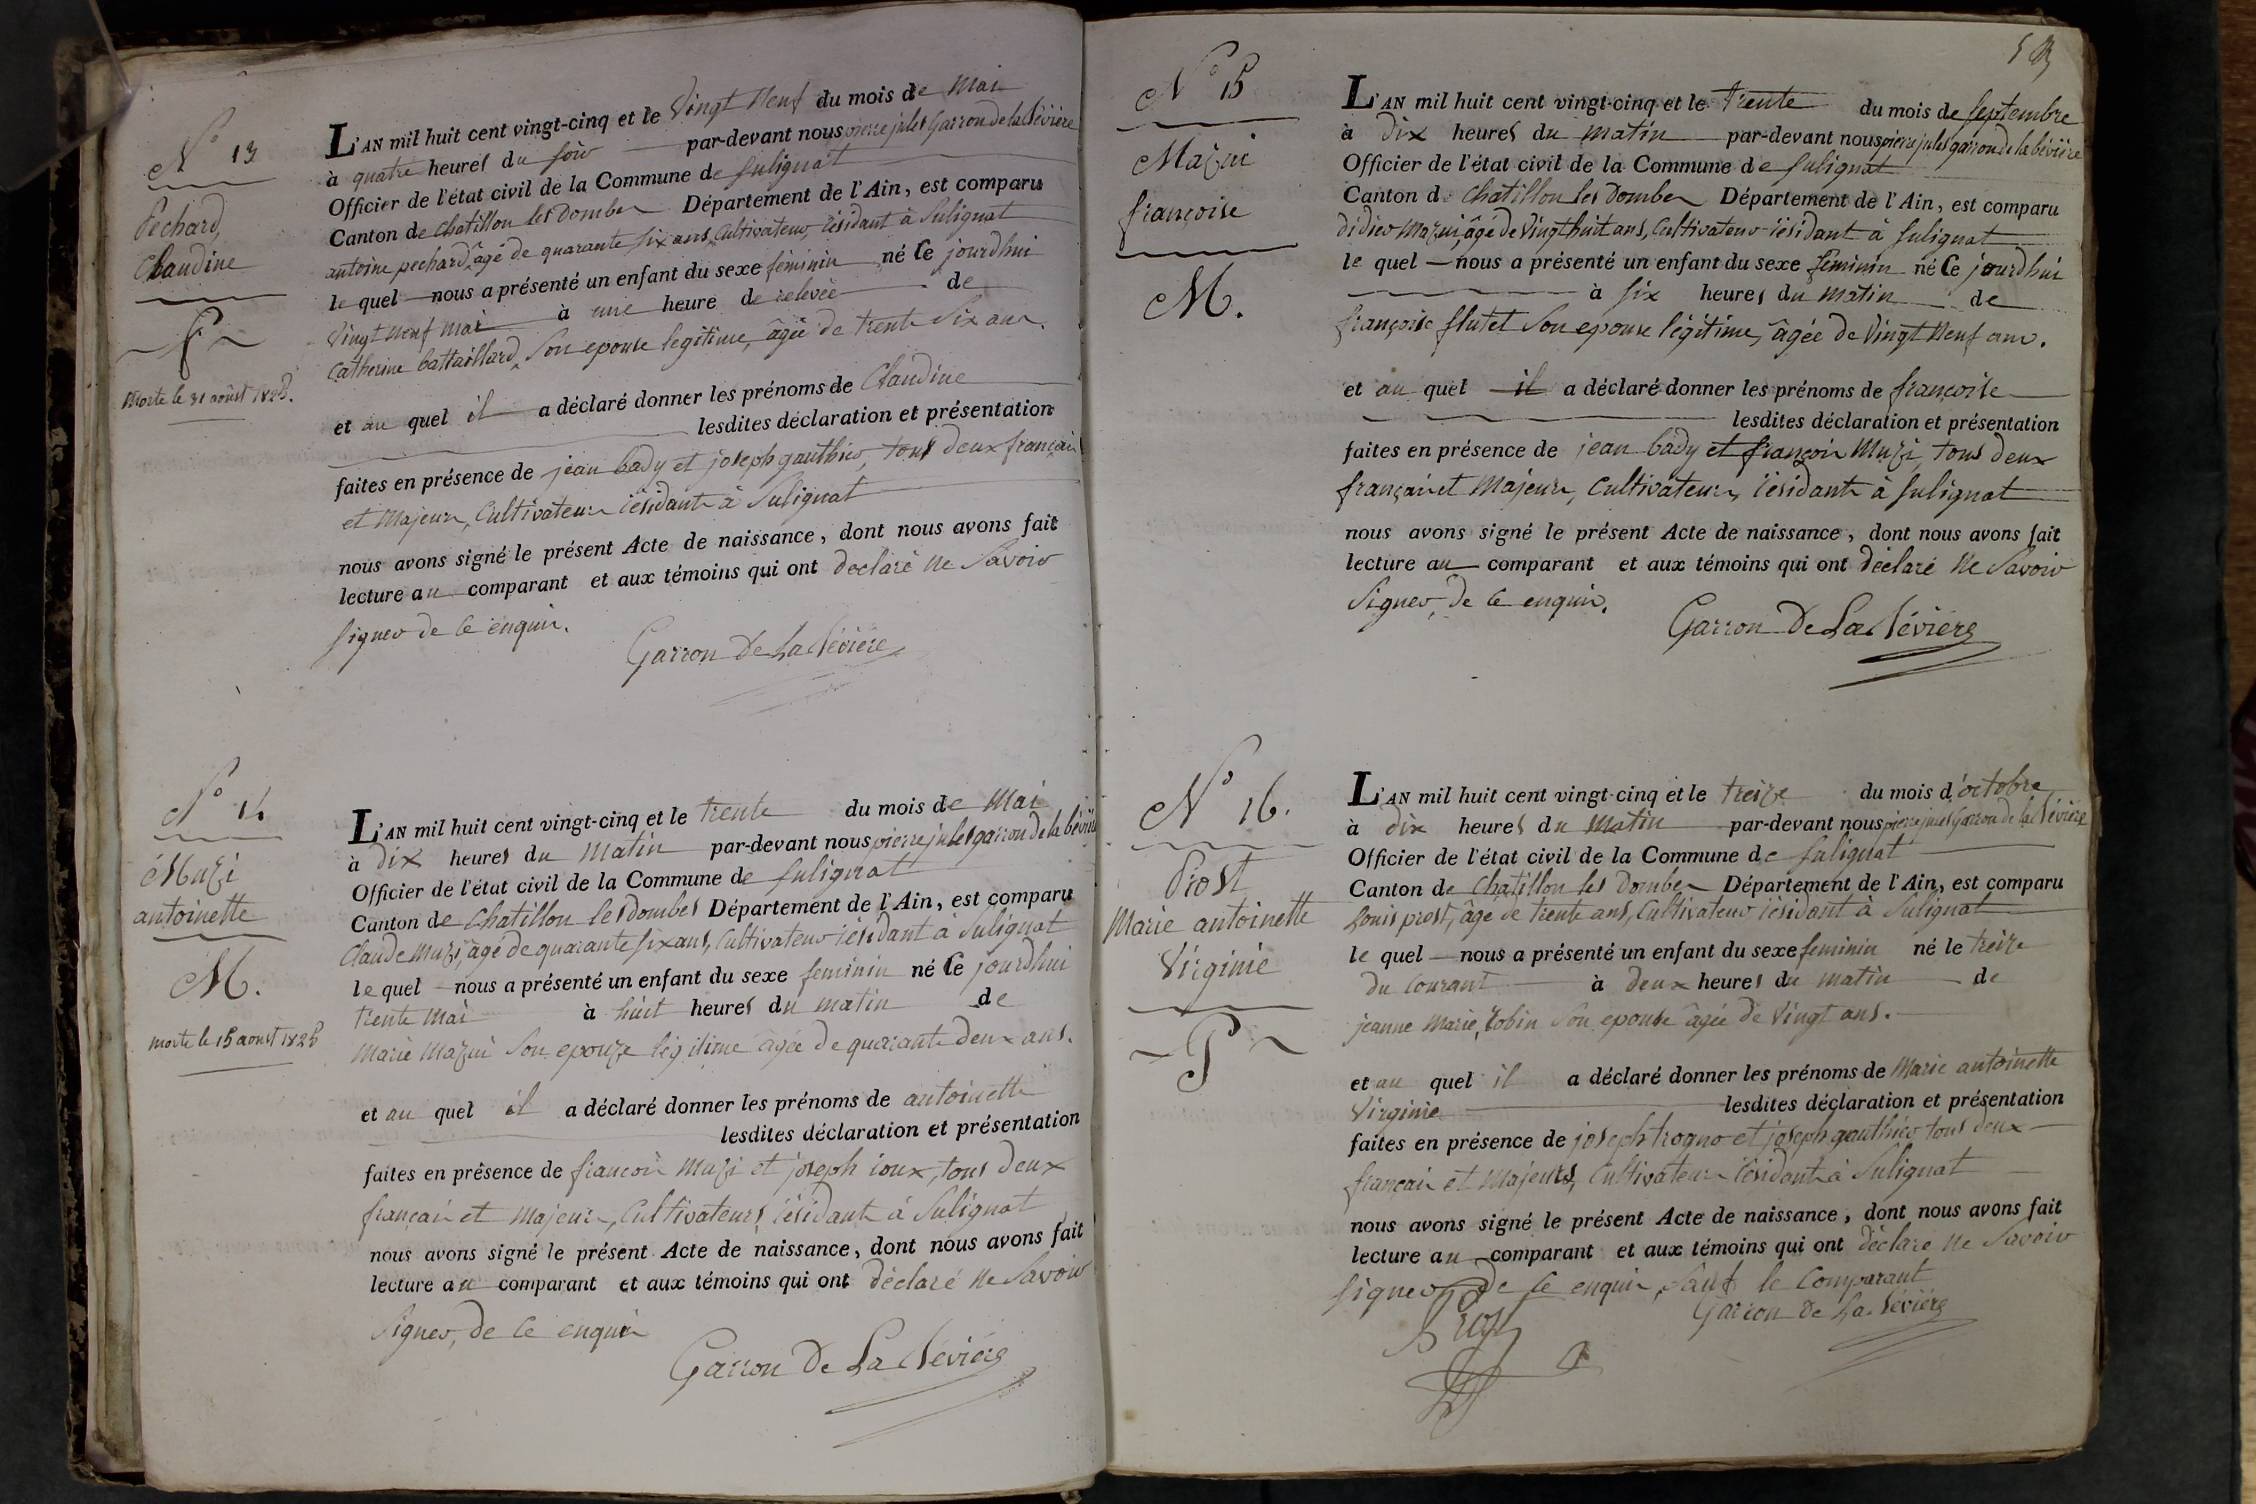 N° 13
Pechard,
Claudine
P
morte le 31 août 1825.
L'AN mil huit cent vingt-cinq et le Vingt Neuf du mois de Mai
à quatre heures du soir par-devant nous pierre jules Garron de la Bévière
Officier de l'état civil de la Commune de Sulignat
Canton de Chatillon les Dombes Département de l'Ain, est comparu
antoine pechard, âgé de quarante six ans, Cultivateur, résidant à Sulignat
le quel nous a présenté un enfant du sexe féminin né Ce jourdhui
Vingt neuf mai à une heure de relevée de
Catherine battaillard, Son epouse legitime, âgée de trente Six ans.
et au quel il a déclaré donner les prénoms de Claudine
lesdites déclaration et présentation
faites en présence de jean bady et joseph gauthier, tous deux français
et Majeurs, Cultivateurs résidants à Sulignat
nous avons signé le présent Acte de naissance, dont nous avons fait
lecture au comparant et aux témoins qui ont declaré Ne Savoir
Signer de Ce enquis.
Garron De La Bévière
N° 14
Muzi
antoinette
M.
morte le 15 aoust 1825
L'AN mil huit cent vingt-cinq et le trente du mois de Mai
à Dix heures du Matin par-devant nous pierre jules garron de la bévière
Officier de l'état civil de la Commune de Sulignat
Canton de Chatillon les dombes Département de l'Ain, est comparu
Claude Muzi, âgé de quarante six ans, Cultivateur résidant à Sulignat
le quel nous a présenté un enfant du sexe feminin né Ce jourdhui
trente Mai à huit heures du matin de
Marie Mazui Son epouze légitime âgée de quarante deux ans.
et au quel il a déclaré donner les prénoms de antoinette
lesdites déclaration et présentation
faites en présence de françois Muzi et joseph ioux, tous deux
français et Majeurs, Cultivateurs, résidants à Sulignat
nous avons signé le présent Acte de naissance, dont nous avons fait
lecture au comparant et aux témoins qui ont déclaré Ne Savoir
Signer, de Ce enquis
Garron De La Bévière
N° 15
Mazui
françoise
M.
L'AN mil huit cent vingt-cinq et le Trente du mois de Septembre
à Dix heures du matin par-devant nous pierre jules garron de la bévière
Officier de l'état civil de la Commune de Sulignat
Canton de Chatillon les Dombes Département de l'Ain, est comparu
didier Mazui, âgé de Vingt huit ans, Cultivateur résidant à Sulignat
le quel nous a présenté un enfant du sexe féminin né Ce jourdhui
à six heures du matin de
françoise flutet Son epouse légitime, âgée de Vingt Neuf ans.
et au quel il a déclaré donner les prénoms de françoise
lesdites déclaration et présentation
faites en présence de jean bady et françois Muzi, tous deux
français et Majeurs, Cultivateurs, résidants à Sulignat
nous avons signé le présent Acte de naissance, dont nous avons fait
lecture au comparant et aux témoins qui ont déclaré Ne Savoir
Signer, de Ce enquis.
Garron De La Bévière
N° 16.
Prost
Marie antoinette
Virginie
P
L'AN mil huit cent vingt-cinq et le treize du mois d'octobre
à dix heures du Matin par-devant nous pierre jules Garron de la Bévière
Officier de l'état civil de la Commune de Sulignat
Canton de Chatillon les Dombes Département de l'Ain, est comparu
Louis prost, âgé de trente ans, Cultivateur résidant à Sulignat
le quel nous a présenté un enfant du sexe feminin né le treize
du Courant à Deux heures du matin de
jeanne Marie robin Son epouse âgée de Vingt ans.
et au quel il a déclaré donner les prénoms de Marie antoinette
Virginie lesdites déclaration et présentation
faites en présence de joseph trogno et joseph gauthier tous deux
français et Majeurs, Cultivateurs résidants à Sulignat
nous avons signé le présent Acte de naissance, dont nous avons fait
lecture au comparant et aux témoins qui ont déclaré Ne Savoir
Signer, de Ce enquis, Sauf le Comparant
Prost
Garron de La Bévière